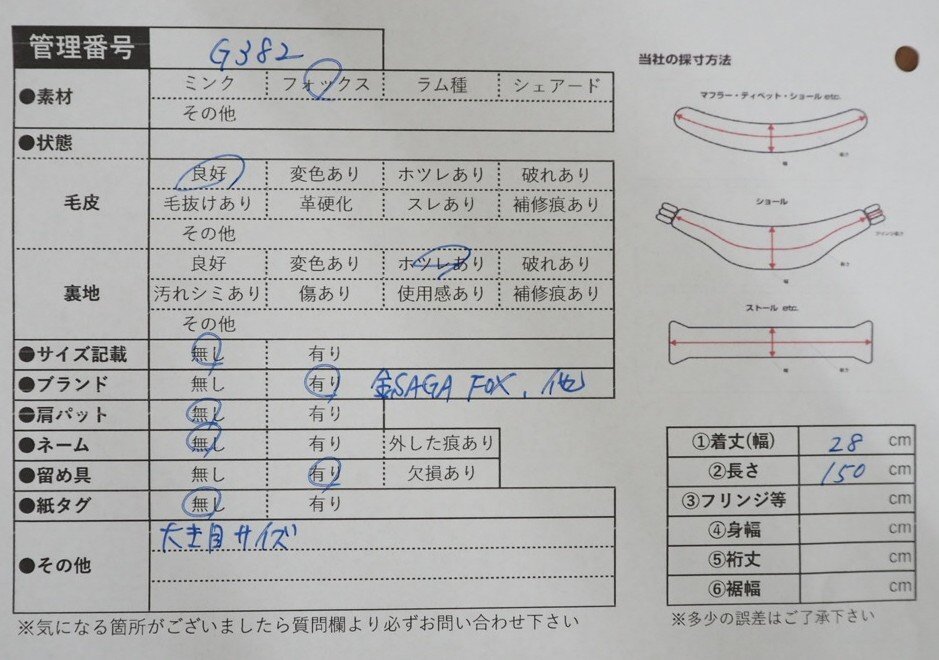 管理番号 G382
●素材 ミンク フォックス ラム種 シェアード
その他
●状態
毛皮 良好 変色あり ホツレあり 破れあり
毛抜けあり 革硬化 スレあり 補修痕あり
その他
裏地 良好 変色あり ホツレあり 破れあり
汚れシミあり 傷あり 使用感あり 補修痕あり
その他
●サイズ記載 無し 有り
●ブランド 無し 有り 金SAGA FOX、他
●肩パット 無し 有り
●ネーム 無し 有り 外した痕あり
●留め具 無し 有り 欠損あり
●紙タグ 無し 有り
●その他 大き目サイズ
※気になる箇所がございましたら質問欄より必ずお問い合わせ下さい
当社の採寸方法
マフラー・ティペット・ショール etc.
幅 長さ
ショール
フリンジ長さ
幅 長さ
ストール etc.
幅 長さ
①着丈(幅) 28 cm
②長さ 150 cm
③フリンジ等 cm
④身幅 cm
⑤裄丈 cm
⑥裾幅 cm
※多少の誤差はご了承下さい